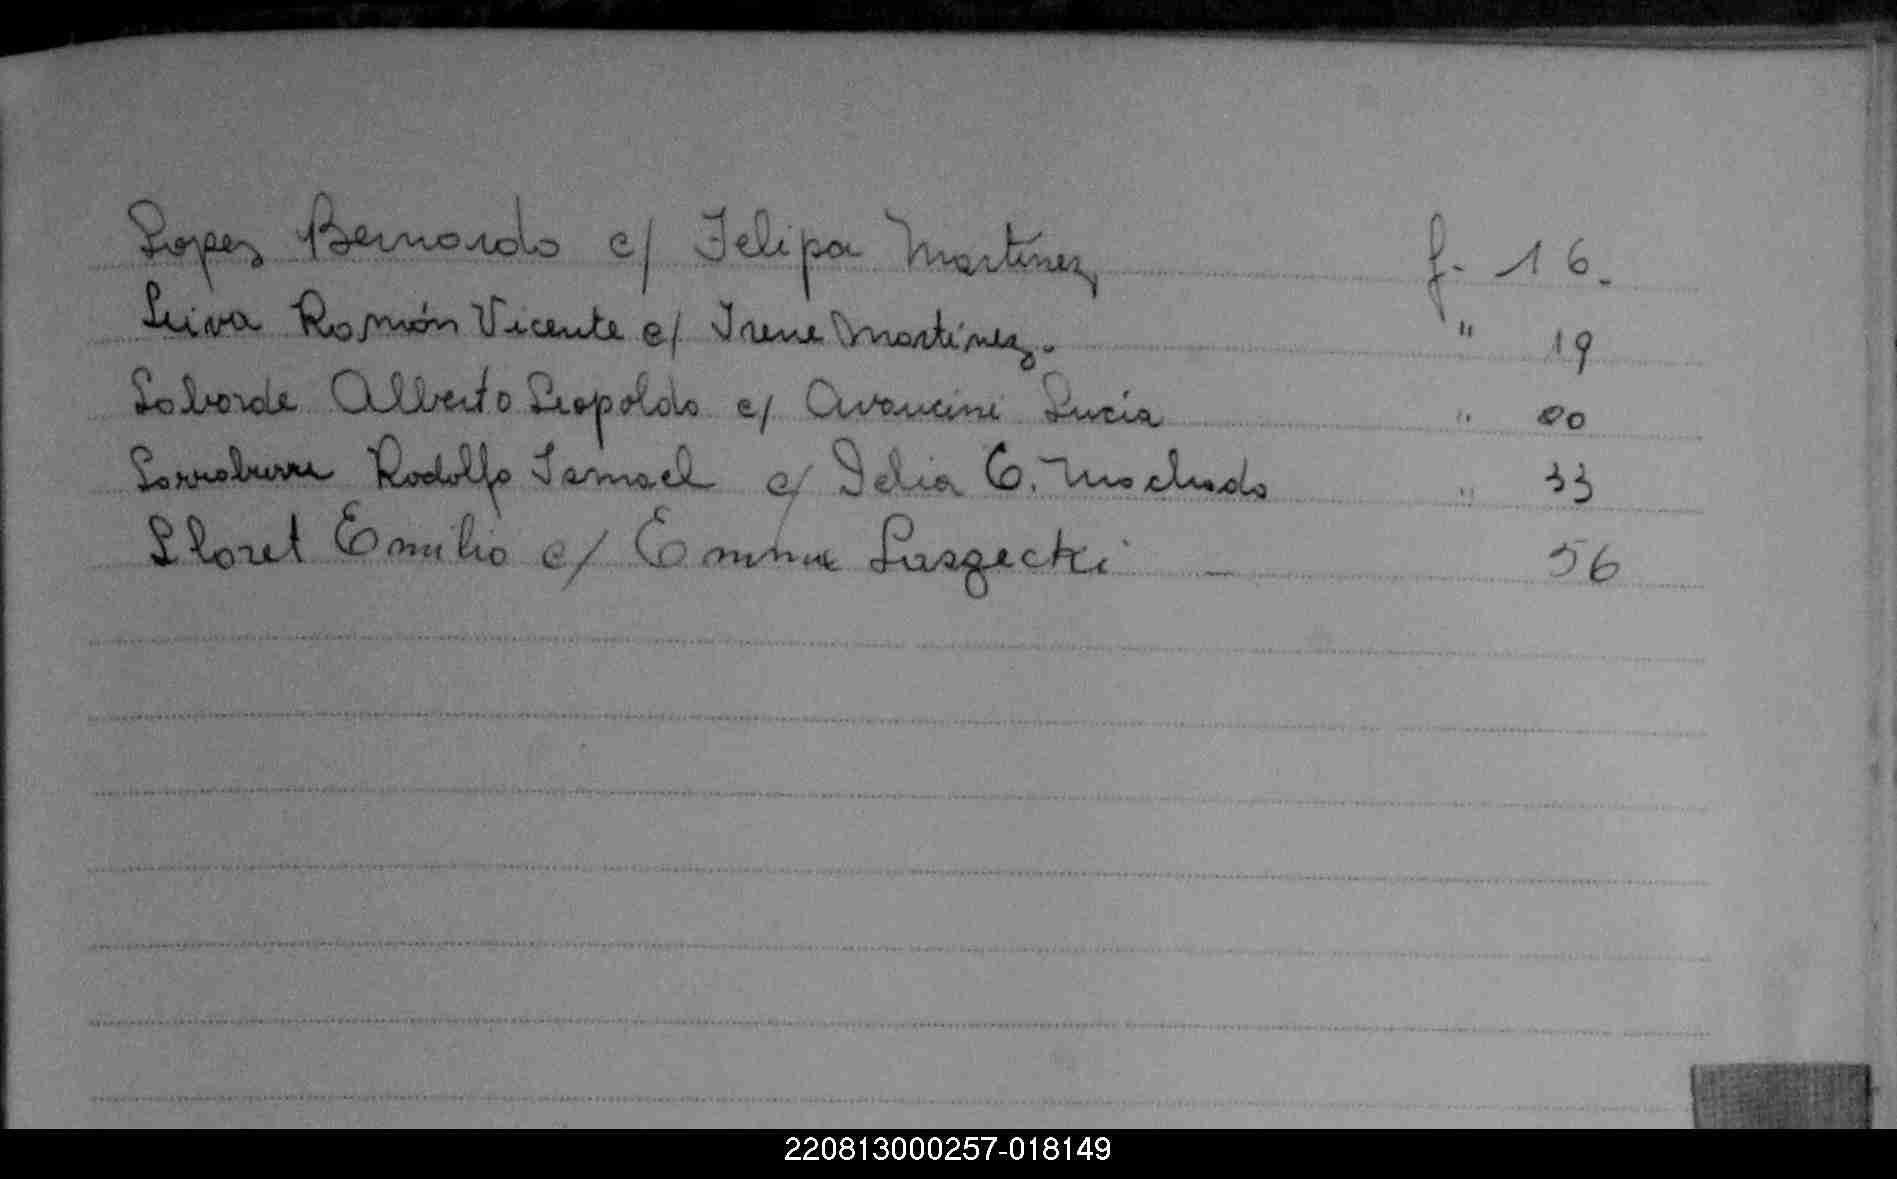 Lopez Bernardo c/ Felipa Martínez f. 16.
Leiva Ramón Vicente c/ Irene Martínez. " 19
Laborde Alberto Leopoldo c/ Avancini Lucía " 20
Larraburu Rodolfo Ismael c/ Delia C. Machado " 33
Lloret Emilio c/ Emma Laszecki — 56
220813000257-018149